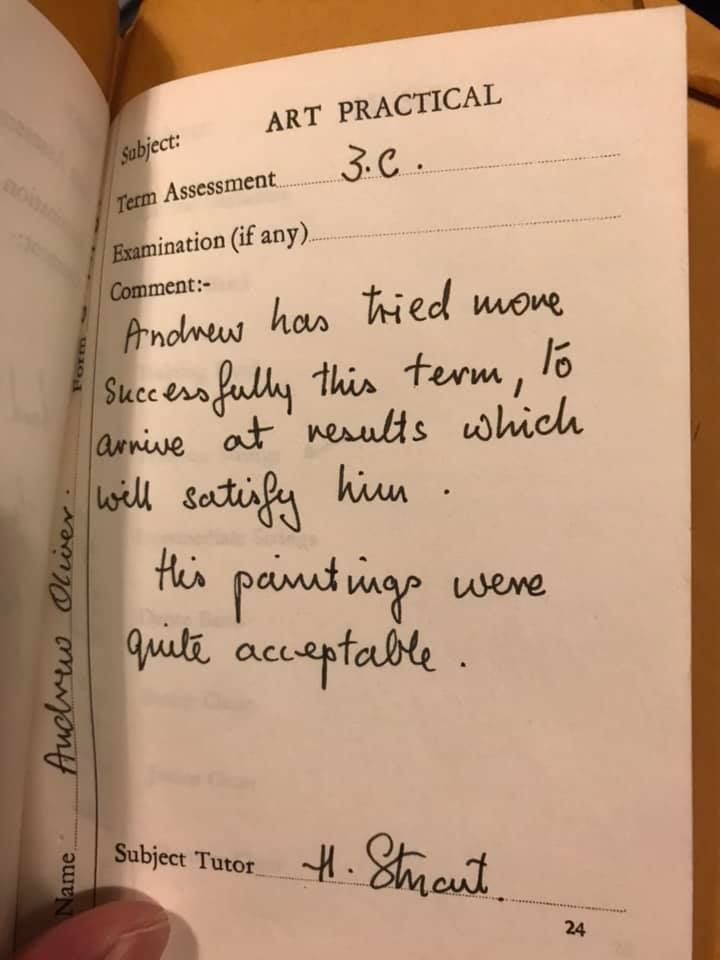 Subject: ART PRACTICAL
Term Assessment 3.C.
Examination (if any)
Comment:-
Andrew has tried more
Successfully this term, to
arrive at results which
will satisfy him.
His paintings were
quite acceptable.
Subject Tutor H.
24
Name Andrew Oliver.
Form